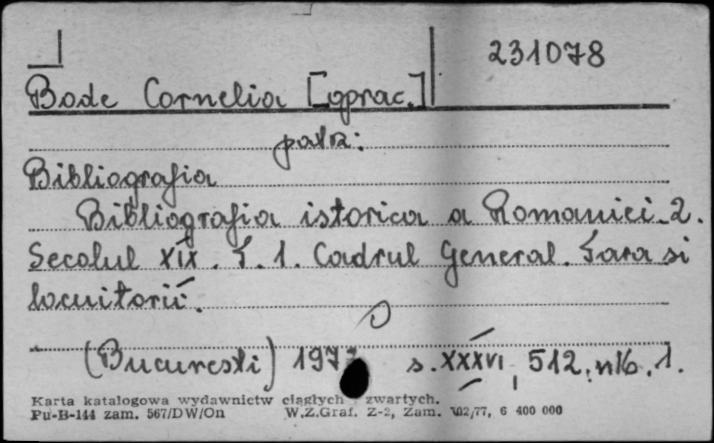 231078
Bode Cornelia [oprac.]
patrz:
Bibliografia
Bibliografia istorica a Romaniei. 2.
Secolul XIX. T. 1. Cadrul General. Tara si
locuitorii.
(Bucuresti) 197 s. XXXVI, 512, nlb. 1.
Karta katalogowa wydawnictw ciągłych zwartych.
Pu-B-144 zam. 567/DW/On W.Z.Graf. Z-2, Zam. 702/77, 6 400 000